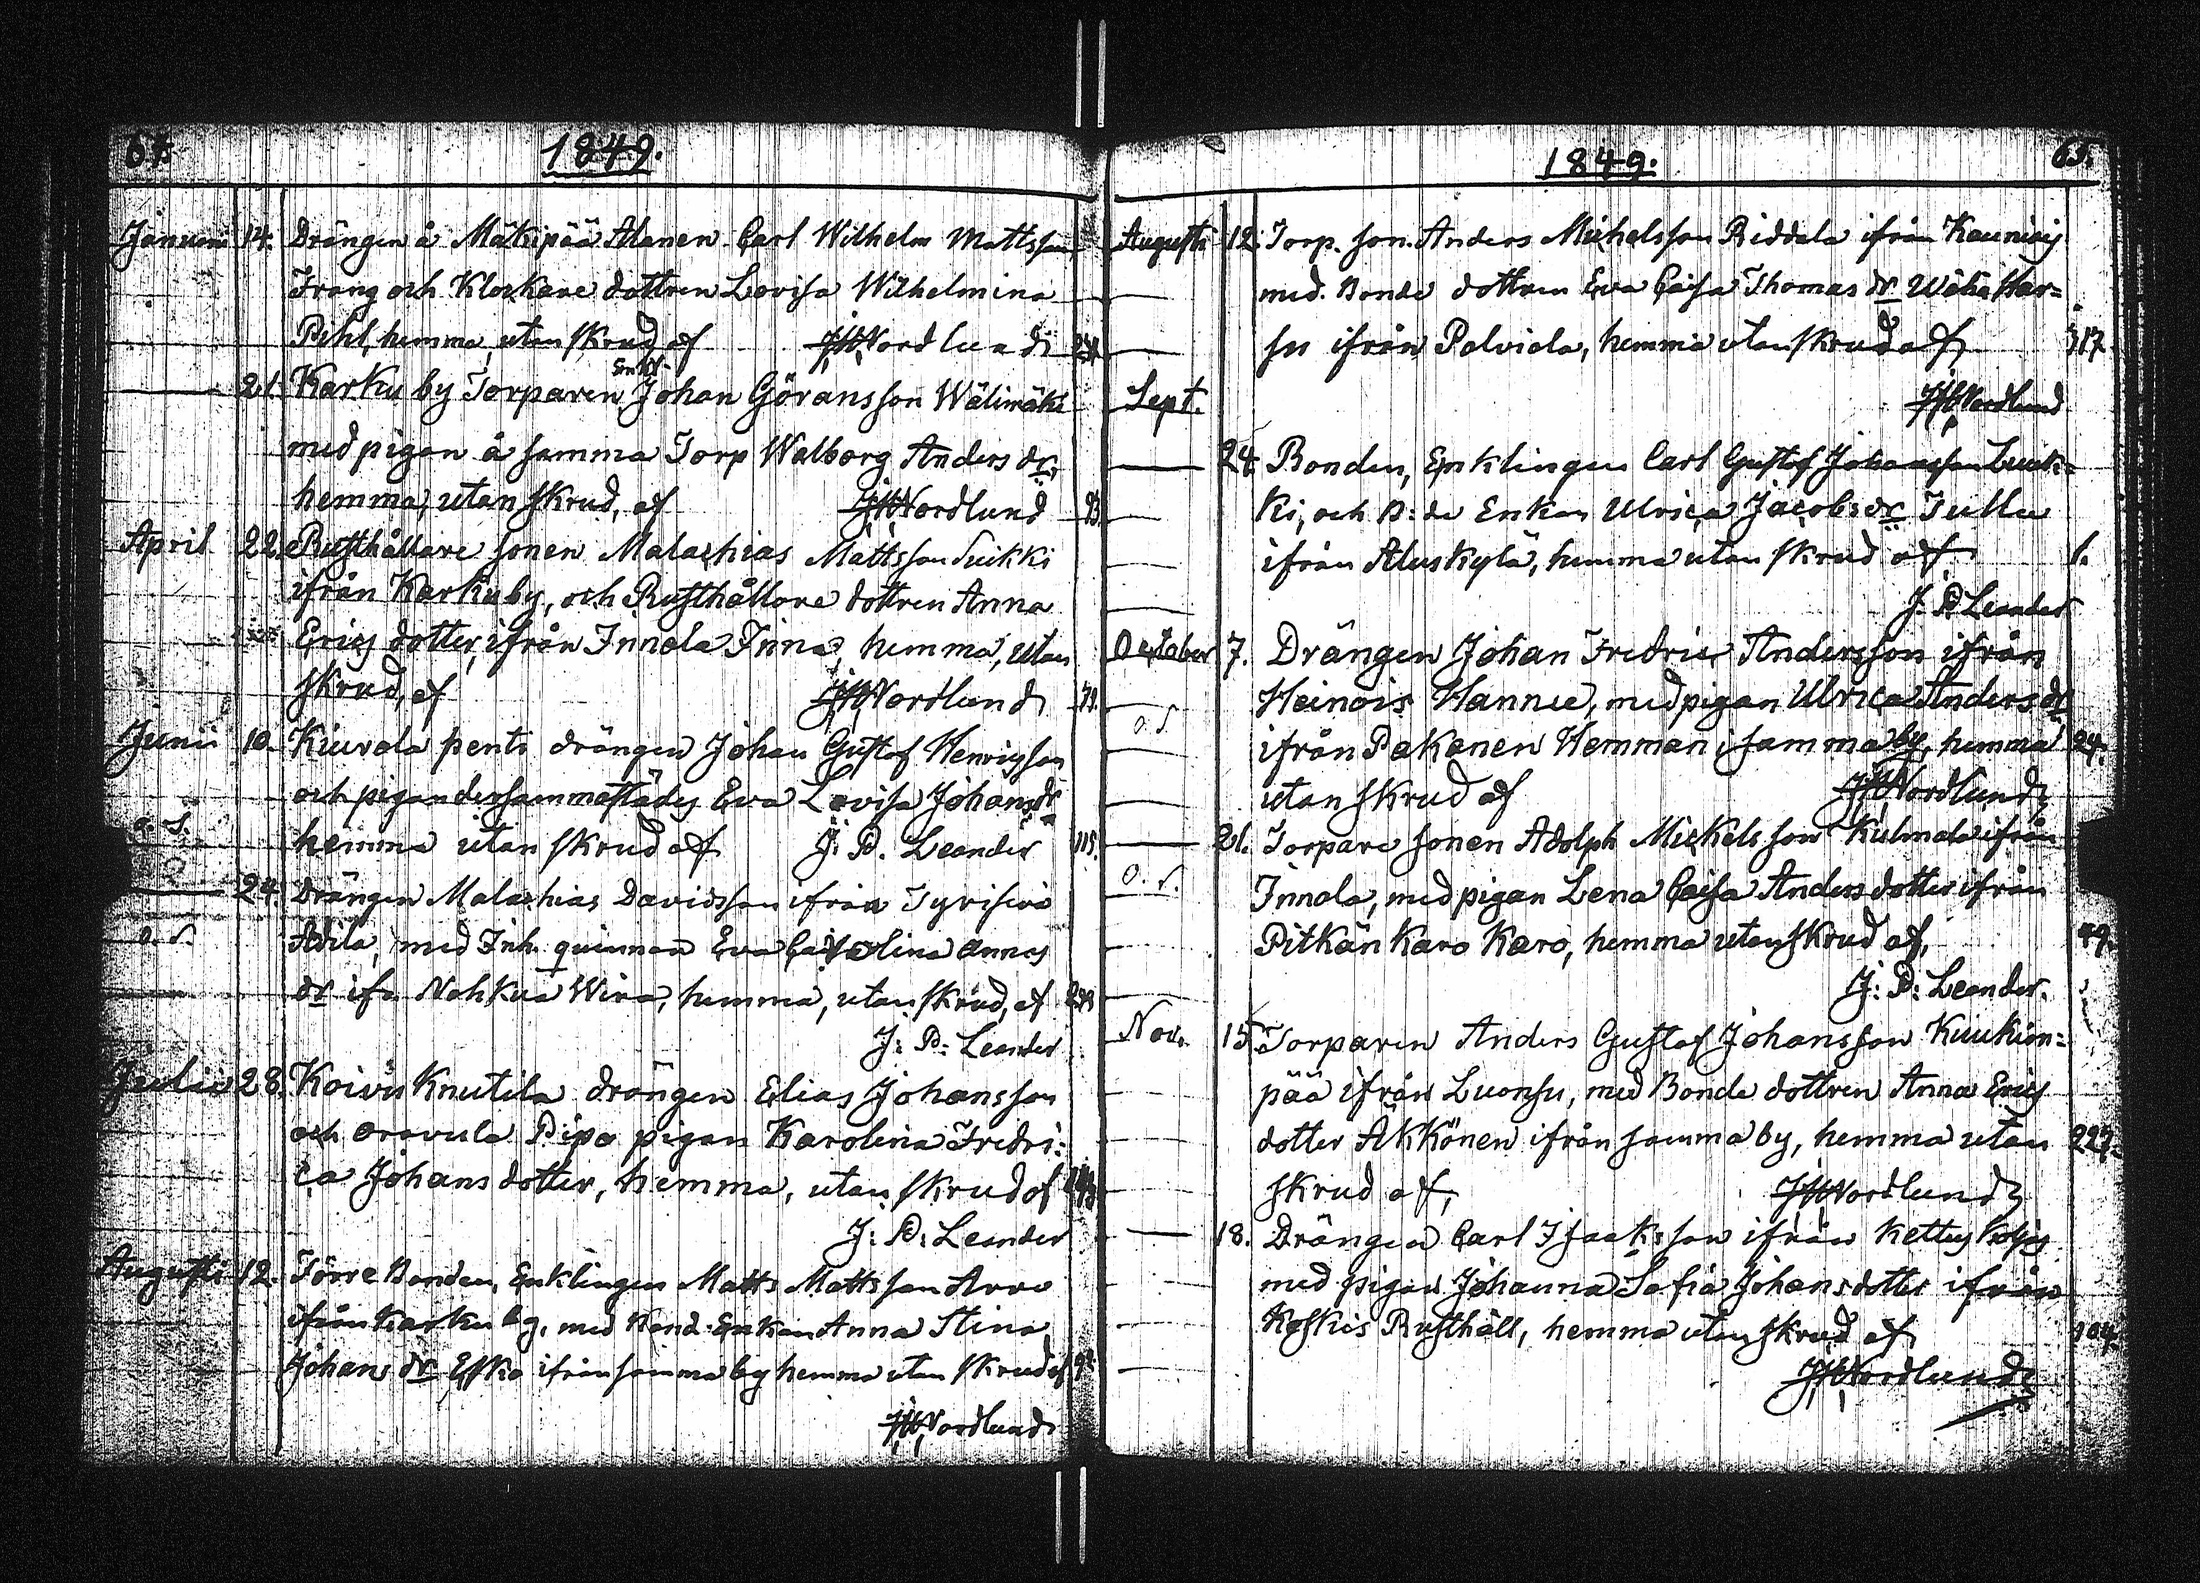 64.
1849.
Januarii 14. Drängen å Mäkipää Alanen Carl Wilhelm Mattsson
Frang och Klockare dottren Lovisa Wilhelmina
Pihl, hemma, utan skrud af JHNordlund
21. Karku by Torparen Enkl. Johan Göransson Wälimäki
med pigan å samma Torp Walborg Anders dr,
hemma, utan skrud, af JHNordlund 93
April 22. Rusthållare sonen Malachias Mattsson Suikki
ifrån Karkuby, och Rusthållare dottren Anna
Erics dotter, ifrån Innola Inna, hemma, utan
skrud, af JHNordlund 79.
Junii 10. Kiurola penti drängen Johan Gustof Henricsson
och pigan dersammastädes Eva Lovisa Johans dr
o. S. hemma utan skrud af J: P. Leander 115.
24. Drängen Malachias Davidsson ifrån Tyrisevä
o. S. Adila, med Inh. quinnan Eva Carolina Annæ
dr ifr. Nohkua Wira, hemma, utan skrud, af
J: P: Leander
Julii 28. Koivu Knutila drängen Elias Johansson
och Oravula Pipo pigan Karolina Fredri:
ca Johans dotter, hemma, utan skrud af
J: P: Leander
Augusti 12. Förre Bonden, Enklingen Matts Mattsson Arvo
ifrån Karku by, med Bond. Enkan Anna Stina
Johans dr Esko ifrån samma by hemma utan skrud af
JHNordlund
1849.
65.
Augusti 12. Torp. son. Anders Michelsson Riddala ifrån Kauniais
med. Bonde dottren Eva Caisa Thomas dr Wähä Har=
su ifrån Palviala, hemma utan skrud af 317.
Sept. JHNordlund
24. Bonden, Enklingen Carl Gustof Johansson Luuk=
ki, och B: de Enkan Ulrica Jacobs dr Tullu
ifrån Aluskylä, hemma utan skrud af 1.
J. P. Leander
October 7. Drängen Johan Fredric Andersson ifrån
Heinois Hannu, med pigan Ulrica Anders dr
o. S. ifrån Pakanen Hemman i samma by, hemma 24.
utan skrud af JHNordlund
21. Torpare sonen Adolph Mickelsson Kulmala ifrån
o. S. Innola, med pigan Lena Caisa Anders dotter ifrån
Pitkän Karo Karo, hemma utan skrud af, 49.
J: P: Leander.
Nov. 15. Torparen Anders Gustof Johansson Kuukion=
pää ifrån Luonsu, med Bonde dottren Anna Erics
dotter Äkkönen ifrån samma by, hemma utan 227.
skrud af, JHNordlund
18. Drängen Carl Isaaksson ifrån Kettus Kojos
med pigan Johanna Sofia Johansdotter ifrån
Koskis Rusthåll, hemma utan skrud af 104.
JHNordlund